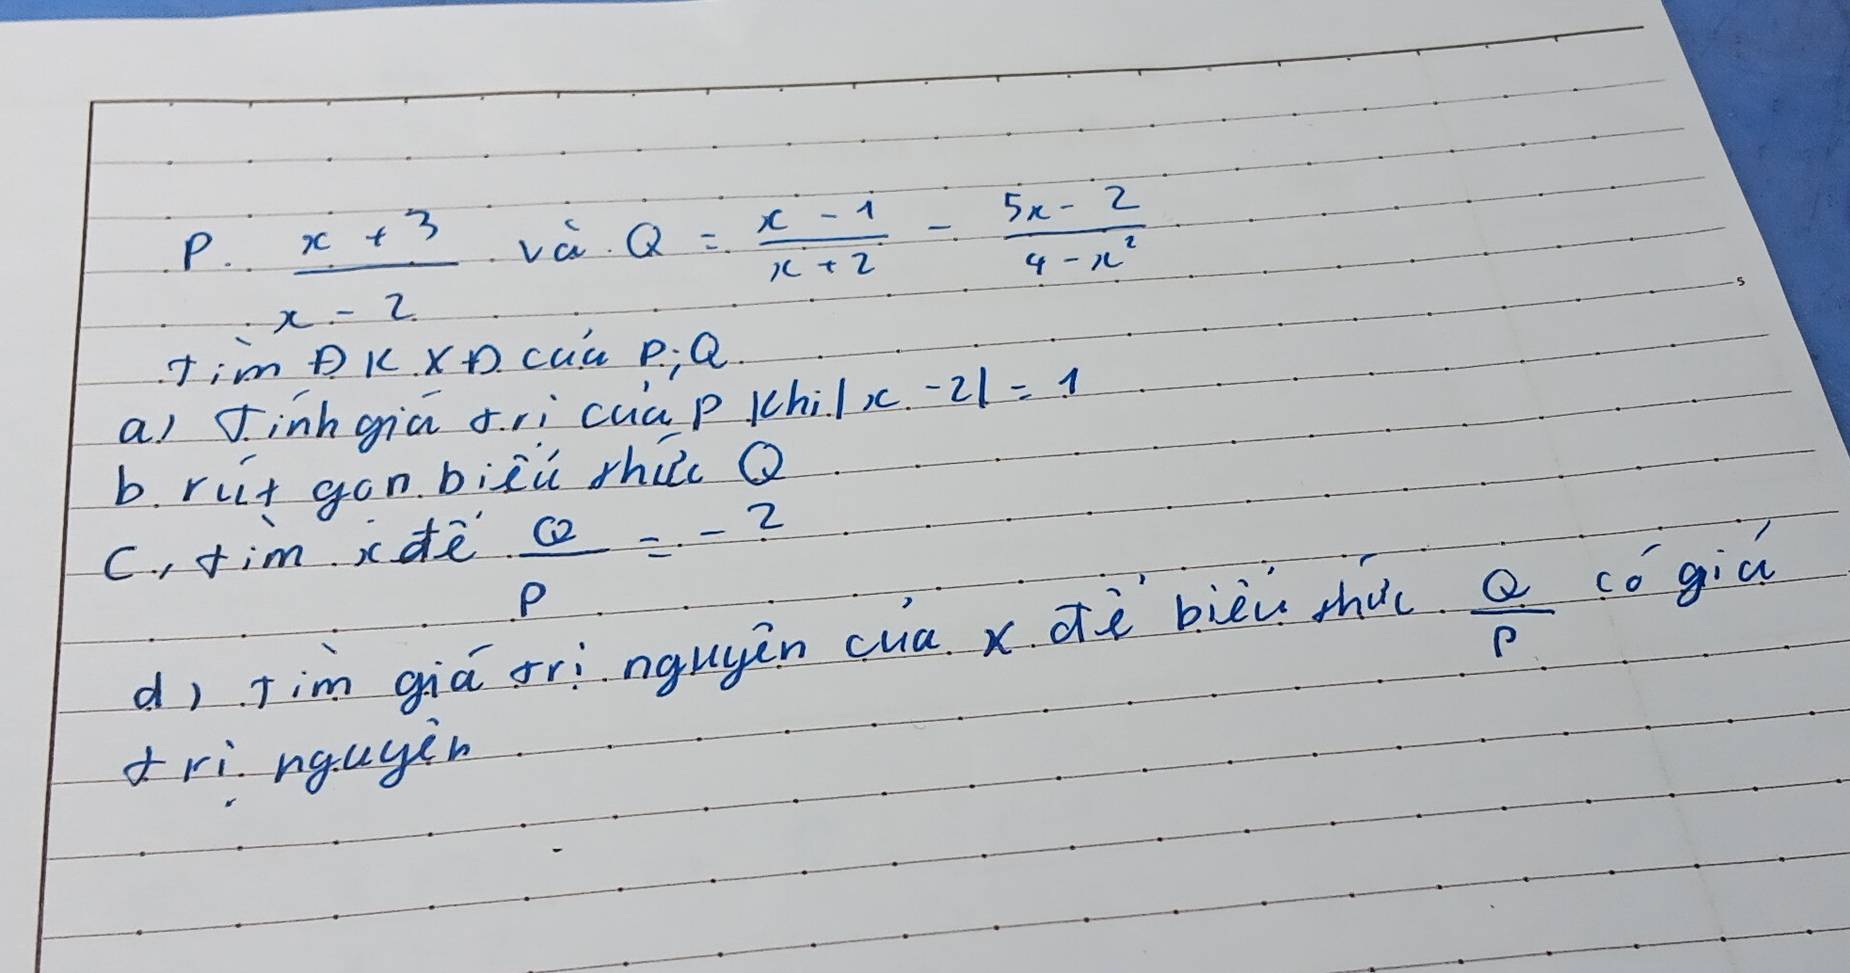 P. x + 3 / x - 2 và Q = x - 1 / x + 2 - 5x - 2 / 4 - x²
Tìm ĐKXĐ của P; Q
a) Tính giá trị của P khi |x - 2| = 1
b. rút gọn biểu thức Q
c., tìm x để Q / P = - 2
d) Tìm giá trị nguyên của x để biểu thức Q / P có giá
trị nguyên